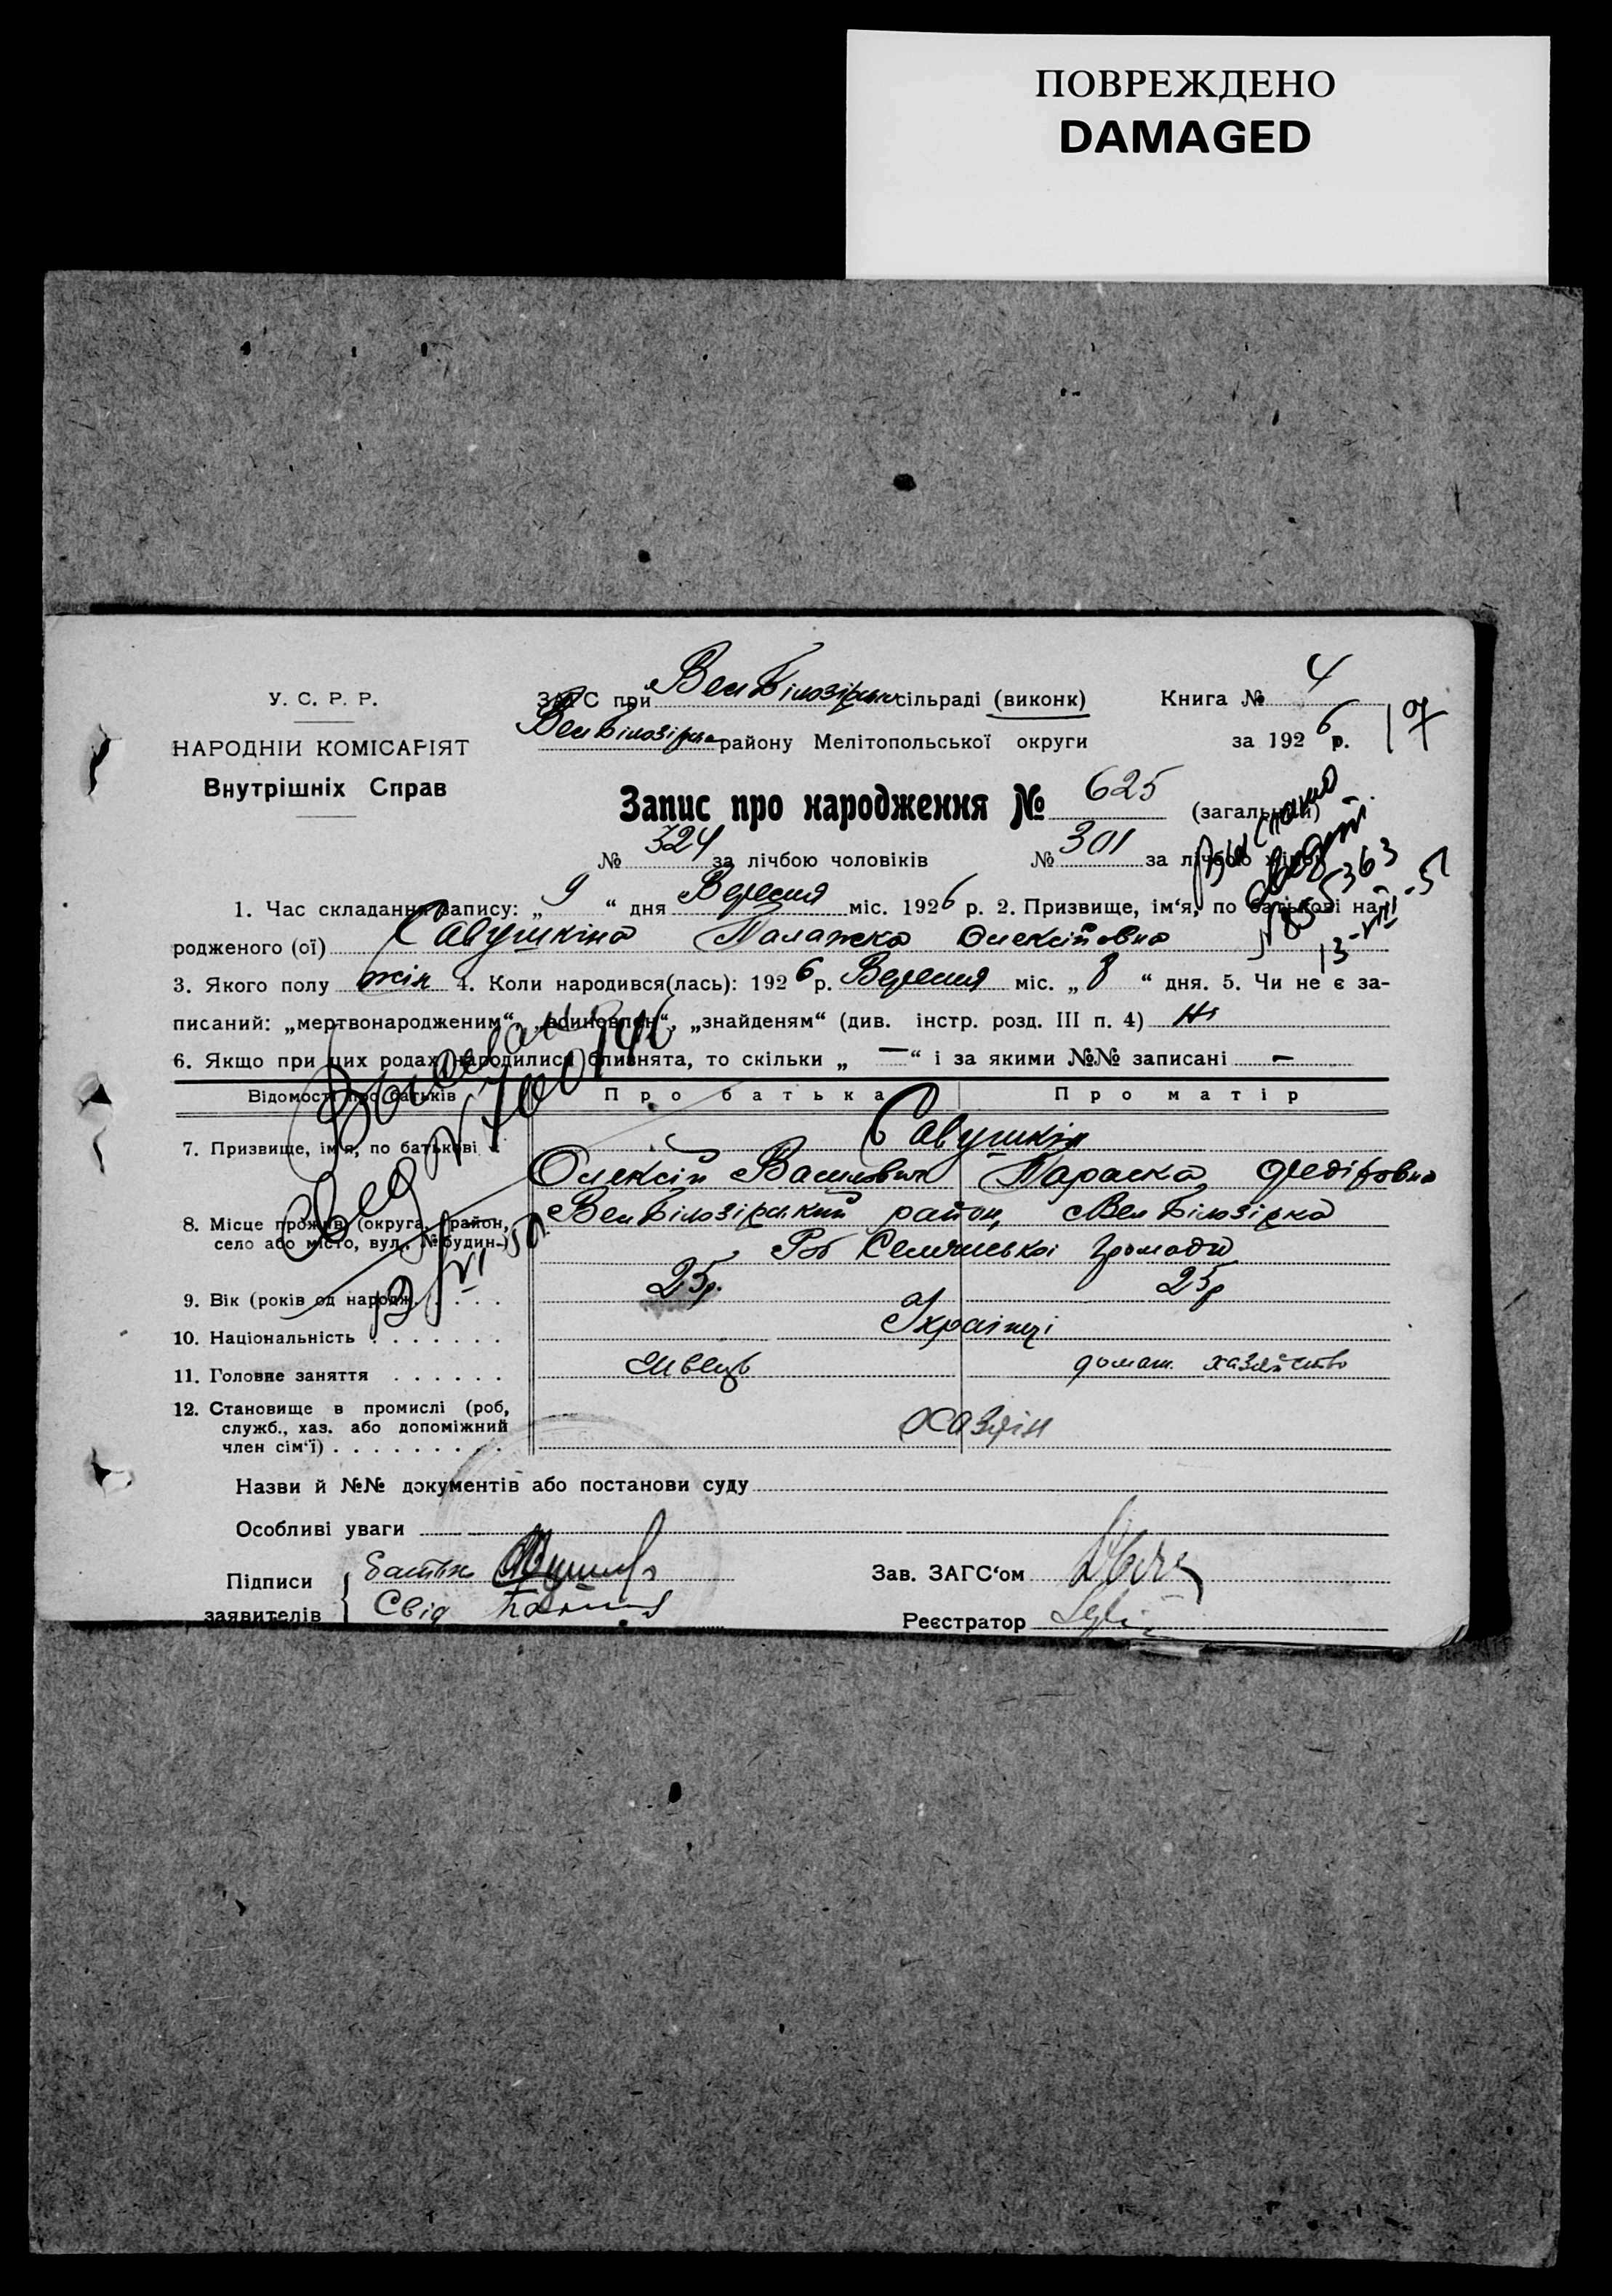 ПОВРЕЖДЕНО
DAMAGED
У. С. Р. Р.
НАРОДНІЙ КОМІСАРІЯТ
Внутрішніх Справ
ЗАГС при Вел Білозірськ сільраді (виконк)
Книга № 4
Вел Білозірка району Мелітопольської округи
за 1926 р.
17
Запис про народження № 625 (загальний)
№ 324 за лічбою чоловіків № 301 за лічбою жінок
Выдано
№ 5363
13-VII-51
1. Час складання запису: „ 9 “ дня Вересня міс. 1926 р. 2. Призвище, ім‘я, по батькові на-
родженого (ої) Савушкіна Палажка Олексіївна
3. Якого полу жін 4. Коли народився(лась): 1926 р. Вересня міс. „ 8 “ дня. 5. Чи не є за-
писаний: „мертвонародженим“, „всиновлен“, „знайденям“ (див. інстр. розд. III п. 4) Ні
6. Якщо при цих родах народилися близнята, то скільки „ — “ і за якими №№ записані —
Відомості про батьків
Про батька
Про матір
7. Призвище, ім‘я, по батькові
Савушкін
Олексій Василович
Параска Федіровна
8. Місце прожив. (округа, район,
село або місто, вул., № будин.)
Вел Білозірський район, Вел Білозірка
громади
9. Вік (років од народж.
25р.
25р
10. Національність
Українці
11. Головне заняття
Швець
домаш. хазяйство
12. Становище в промислі (роб,
служб., хаз. або допоміжний
член сім‘ї)
Хазяїн
Назви й №№ документів або постанови суду
Особливі уваги
Підписи
заявителів
батько
Свід
Зав. ЗАГС‘ом
Реєстратор